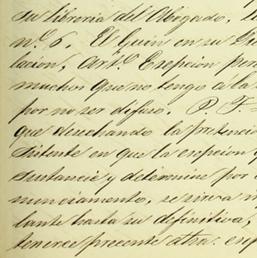 su libreria del Abogado, t
nº 6. El Guin en su Gre
lacion, Artº. Ercpcion pere
muchos que no tengo á la
por no ser difuso. P. F.
que desechando la pretenci
sitente en que la ercpcion
dustancie y determine por
nunciamiento, se sirva
lante hasta su definitiva,
tenerce precente otra. ercp